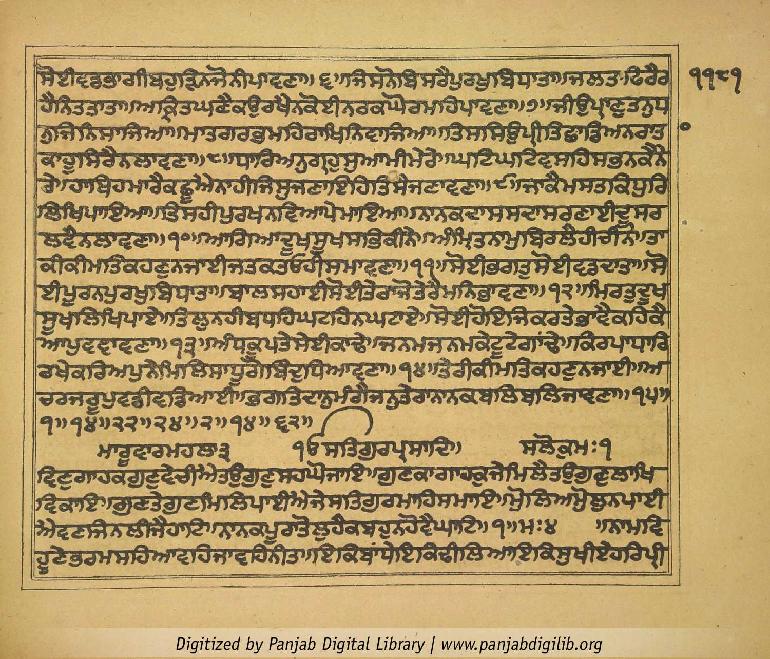 ਸੋਈਵਡਭਾਗੀਬਹੁੜਿਨਜੋਨੀਪਾਵਣਾ॥੬॥ਜਿਸ੨ੋਬਿਸਰੈਪੁਰਖੁਬਿਧਾਤਾ॥ਜਲਤਾਫਿਰੈਰ ੧੧੮੧
ਹੈਨਿਤਤਾਤਾ॥ਅਕ੍ਰਿਤਘਣੈਕਉਰਖੈਨਕੋਈਨਰਕਘੋਰਮਹਿਪਾਵਣਾ॥੭॥ਜੀਉਪ੍ਰਾਣਤਨੁਧ
ਨੁਜਿਨਿਸਾਜਿਆ॥ਮਾਤਗਰਭਮਹਿਰਾਖਿਨਿਵਾਜਿਆ॥ਤਿਸਸਿਉਪ੍ਰੀਤਿਛਾਡਿਅਨਰਾਤਾ
ਕਾਹੂਸਿਰੈਨਲਾਵਣਾ॥੮॥ਧਾਰਿਅਨੁਗ੍ਰਹੁਸੁਆਮੀਮੇਰੇ॥ਘਟਿਘਟਿਵਸਹਿਸਭਨਕੈਨੇ
ਰੇ॥ਹਾਥਿਹਮਾਰੈਕਛੂਐਨਾਹੀਜਿਸੁਜਣਾਇਹਿਤਿਸੈਜਣਾਵਣਾ॥੯॥ਜਾਕੈਮਸਤਕਿਧੁਰਿ
ਲਿਖਿਪਾਇਆ॥ਤਿਸਹੀਪੁਰਖਨਵਿਆਪੈਮਾਇਆ॥ਨਾਨਕਦਾਸਸਦਾਸਰਣਾਈਦੂਸਰ
ਲਵੈਨਲਾਵਣਾ॥੧੦॥ਆਗਿਆਦੂਖਸੂਖਸਭਿਕੀਨੇ॥ਅੰਮ੍ਰਿਤਨਾਮੁਬਿਰਲੈਹੀਚੀਨੇ॥ਤਾ
ਕੀਕੀਮਤਿਕਹਣੁਨਜਾਈਜਤਕਤਓਹੀਸਮਾਵਣਾ॥੧੧॥ਸੋਈਭਗਤੁਸੋਈਵਡਦਾਤਾ॥ਸੋ
ਈਪੂਰਨਪੁਰਖੁਬਿਧਾਤਾ॥ਬਾਲਸਹਾਈਸੋਈਤੇਰਾਜੋਤੇਰੈਮਨਿਭਾਵਣਾ॥੧੨॥ਮਿਰਤੁਦੂਖ
ਸੂਖਲਿਖਿਪਾਏ॥ਤਿਲੁਨਹੀਬਧਹਿਘਟਹਿਨਘਟਾਏ॥ਸੋਈਹੋਇਜਿਕਰਤੇਭਾਵੈਕਹਿਕੈ
ਆਪੁਵਞਾਵਣਾ॥੧੩॥ਅੰਧਕੂਪਤੇਸੇਈਕਾਢੇ॥ਜਨਮਜਨਮਕੇਟੂਟੇਗਾਂਢੇ॥ਕਿਰਪਾਧਾਰਿ
ਰਖੇਕਰਿਅਪੁਨੇਮਿਲਿਸਾਧੂਗੋਬਿੰਦੁਧਿਆਵਣਾ॥੧੪॥ਤੇਰੀਕੀਮਤਿਕਹਣੁਨਜਾਈ॥ਅ
ਚਰਜਰੂਪੁਵਡੀਵਡਿਆਈ॥ਭਗਤਿਦਾਨੁਮੰਗੈਜਨੁਤੇਰਾਨਾਨਕਬਲਿਬਲਿਜਾਵਣਾ॥੧੫॥
੧॥੧੪॥੨੨॥੨੪॥੨॥੧੪॥੬੨॥
ਮਾਰੂਵਾਰਮਹਲਾ੩ ੴਸਤਿਗੁਰਪ੍ਰਸਾਦਿ॥ ਸਲੋਕੁਮਃ੧
ਵਿਣੁਗਾਹਕਗੁਣੁਵੇਚੀਐਤਉਗੁਣੁਸਹਘੋਜਾਇ॥ਗੁਣਕਾਗਾਹਕੁਜੇਮਿਲੈਤਉਗੁਣੁਲਾਖਿ
ਵਿਕਾਇ॥ਗੁਣਤੇਗੁਣਮਿਲਿਪਾਈਐਜੇਸਤਿਗੁਰਮਾਹਿਸਮਾਇ॥ਮੋੁਲਿਅਮੋੁਲੁਨਪਾਈ
ਐਵਣਜਿਨਲੀਜੈਹਾਟਿ॥ਨਾਨਕਪੂਰਾਤੋਲੁਹੈਕਬਹੁਨਹੋਵੈਘਾਟਿ॥੧॥ਮਃ੪ ॥ਨਾਮਵਿ
ਹੂਣੇਭਰਮਸਹਿਆਵਹਿਜਾਵਹਿਨੀਤ॥ਇਕਿਬਾਂਧੇਇਕਿਢੀਲਿਆਇਕਿਸੁਖੀਏਹਰਿਪ੍ਰੀ
Digitized by Panjab Digital Library | www.panjabdigilib.org